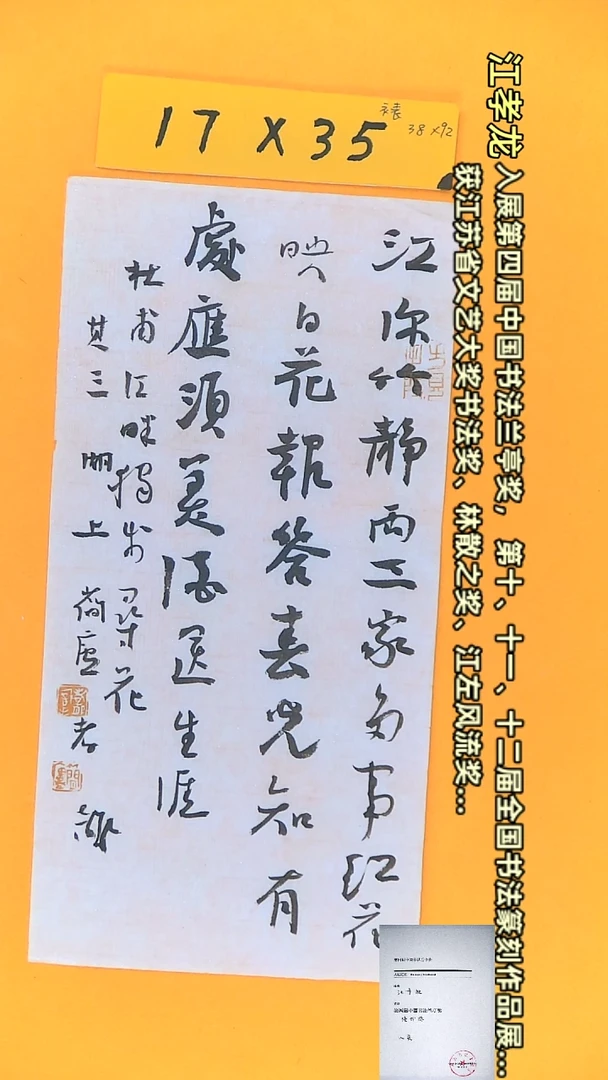 江孝龙 入展第四届中国书法兰亭奖， 第十、十一、十二届全国书法篆刻作品展...
获江苏省文艺大奖书法奖、林散之奖、江左风流奖...
17 X 35 裱 38×92
江深竹靜兩三家多事紅花
映白花報答春光知有
處應須美酒送生涯
杜甫江畔獨步尋花
其三 上 簡廬孝龍